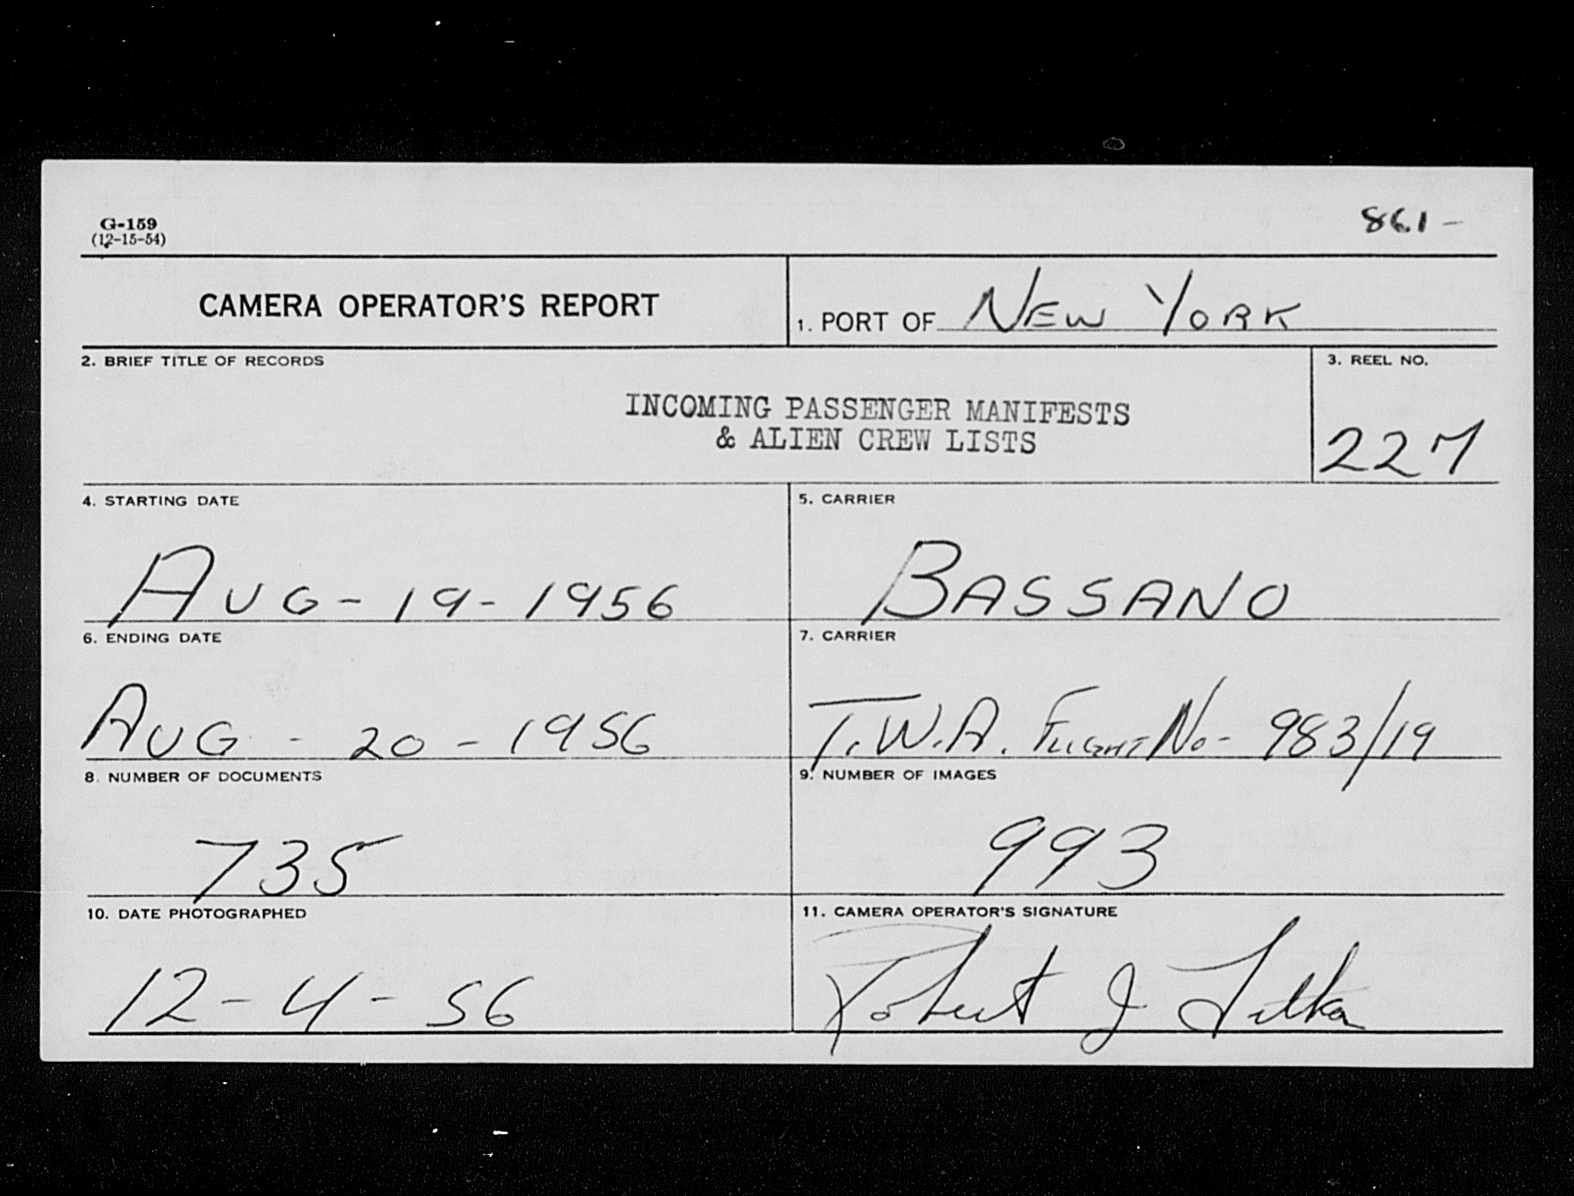 G-159
(12-15-54)
861-
CAMERA OPERATOR'S REPORT
1. PORT OF NEW YORK
2. BRIEF TITLE OF RECORDS
INCOMING PASSENGER MANIFESTS
& ALIEN CREW LISTS
3. REEL NO.
227
4. STARTING DATE
AUG-19-1956
5. CARRIER
BASSANO
6. ENDING DATE
AUG - 20 - 1956
7. CARRIER
T.W.A. FLIGHT No- 983/19
8. NUMBER OF DOCUMENTS
735
9. NUMBER OF IMAGES
993
10. DATE PHOTOGRAPHED
12-4-56
11. CAMERA OPERATOR'S SIGNATURE
Robert J